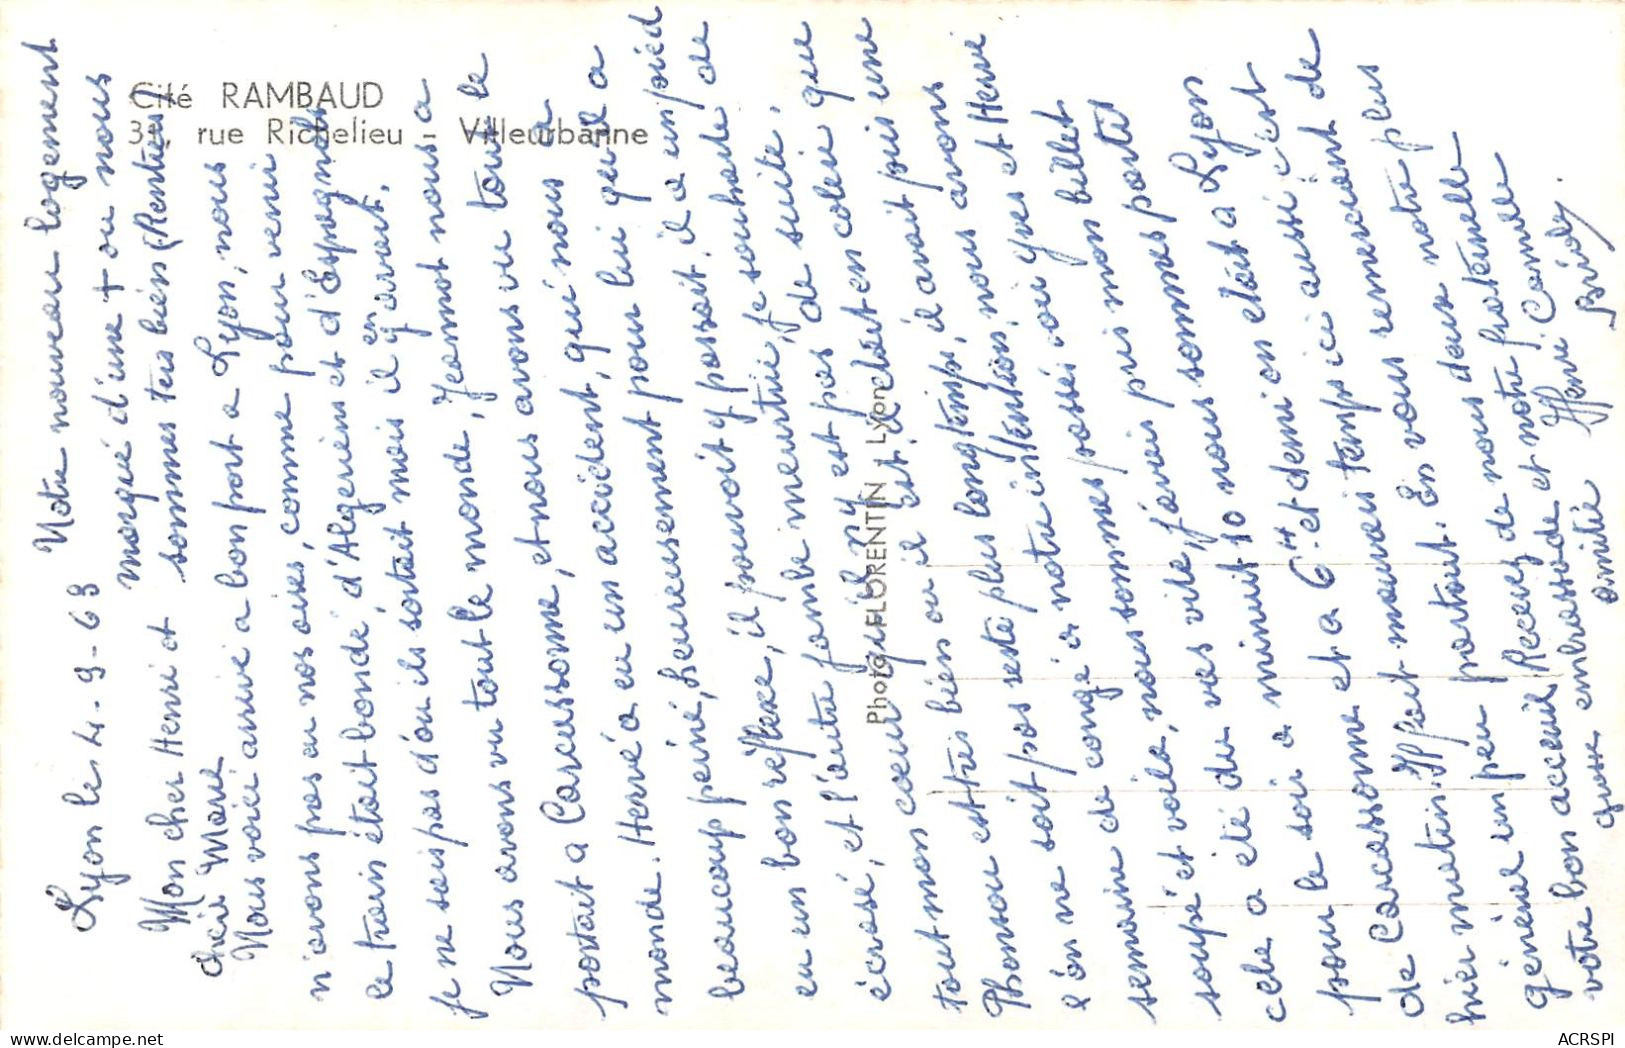 Cité RAMBAUD
rue Richelieu - Villeurbanne
Photo FLORENTIN Lyon
Lyon le 4-9-63
Notre nouveau logement
marqué d'une + ou nous
sommes tres bién (Rentiers)
Mon cher Henri et
chère Marie
Nous voici arrivé a bon port a Lyon, nous
n'avons pas eu nos aises, comme pour venir
le train était bondé, d'Algeriéns et d'Espagnols
je ne sais pas d'ou ils sortait mais il y en avait.
Nous avons vu tout le monde, Jeannot nous a
portait a Carcassonne, et nous avons vu tout le
monde. Hervé a eu un accident, qui nous a
beaucoup peiné, heureusement pour lui qu'il a
eu un bon réflexe, il pouvait y passait, il a un pied
écrasé, et l'autre jambe meurtrie, je souhaite de
tout mon coeur qu'il n'y est pas de suite,
Phonsou est tres bién ou il est, il était en colère que
l'ón ne soit pas resté plus longtémps, il avait pris une
semaine de congé a notre inténtion, nous avons
soupé et voila, nous sommes passés voir Yves et Henri
cela a été du vas vite, j'avais pris mon billet
pour le soir a minuit 10 nous sommes partis
de Carcassonne et a 6 H et demi on etait a Lyon
hier matin. Il fait mauvais temps ici aussi c'est
général un peu partout. En vous remerciant de
votre bon acceuil Recevez de nous deux notre plus
grosse embrassade et notre fraternelle
amitié
Henri Camille